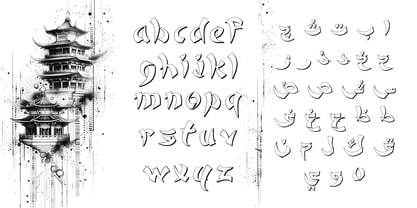 abcdef
ghijkl
mnopq
rstuv
wxyz
ا ب ت ث ج
ح خ د ذ ر ز
س ش ص ض
ط ظ ع غ ف
ق ك ل م ن
ه و ي